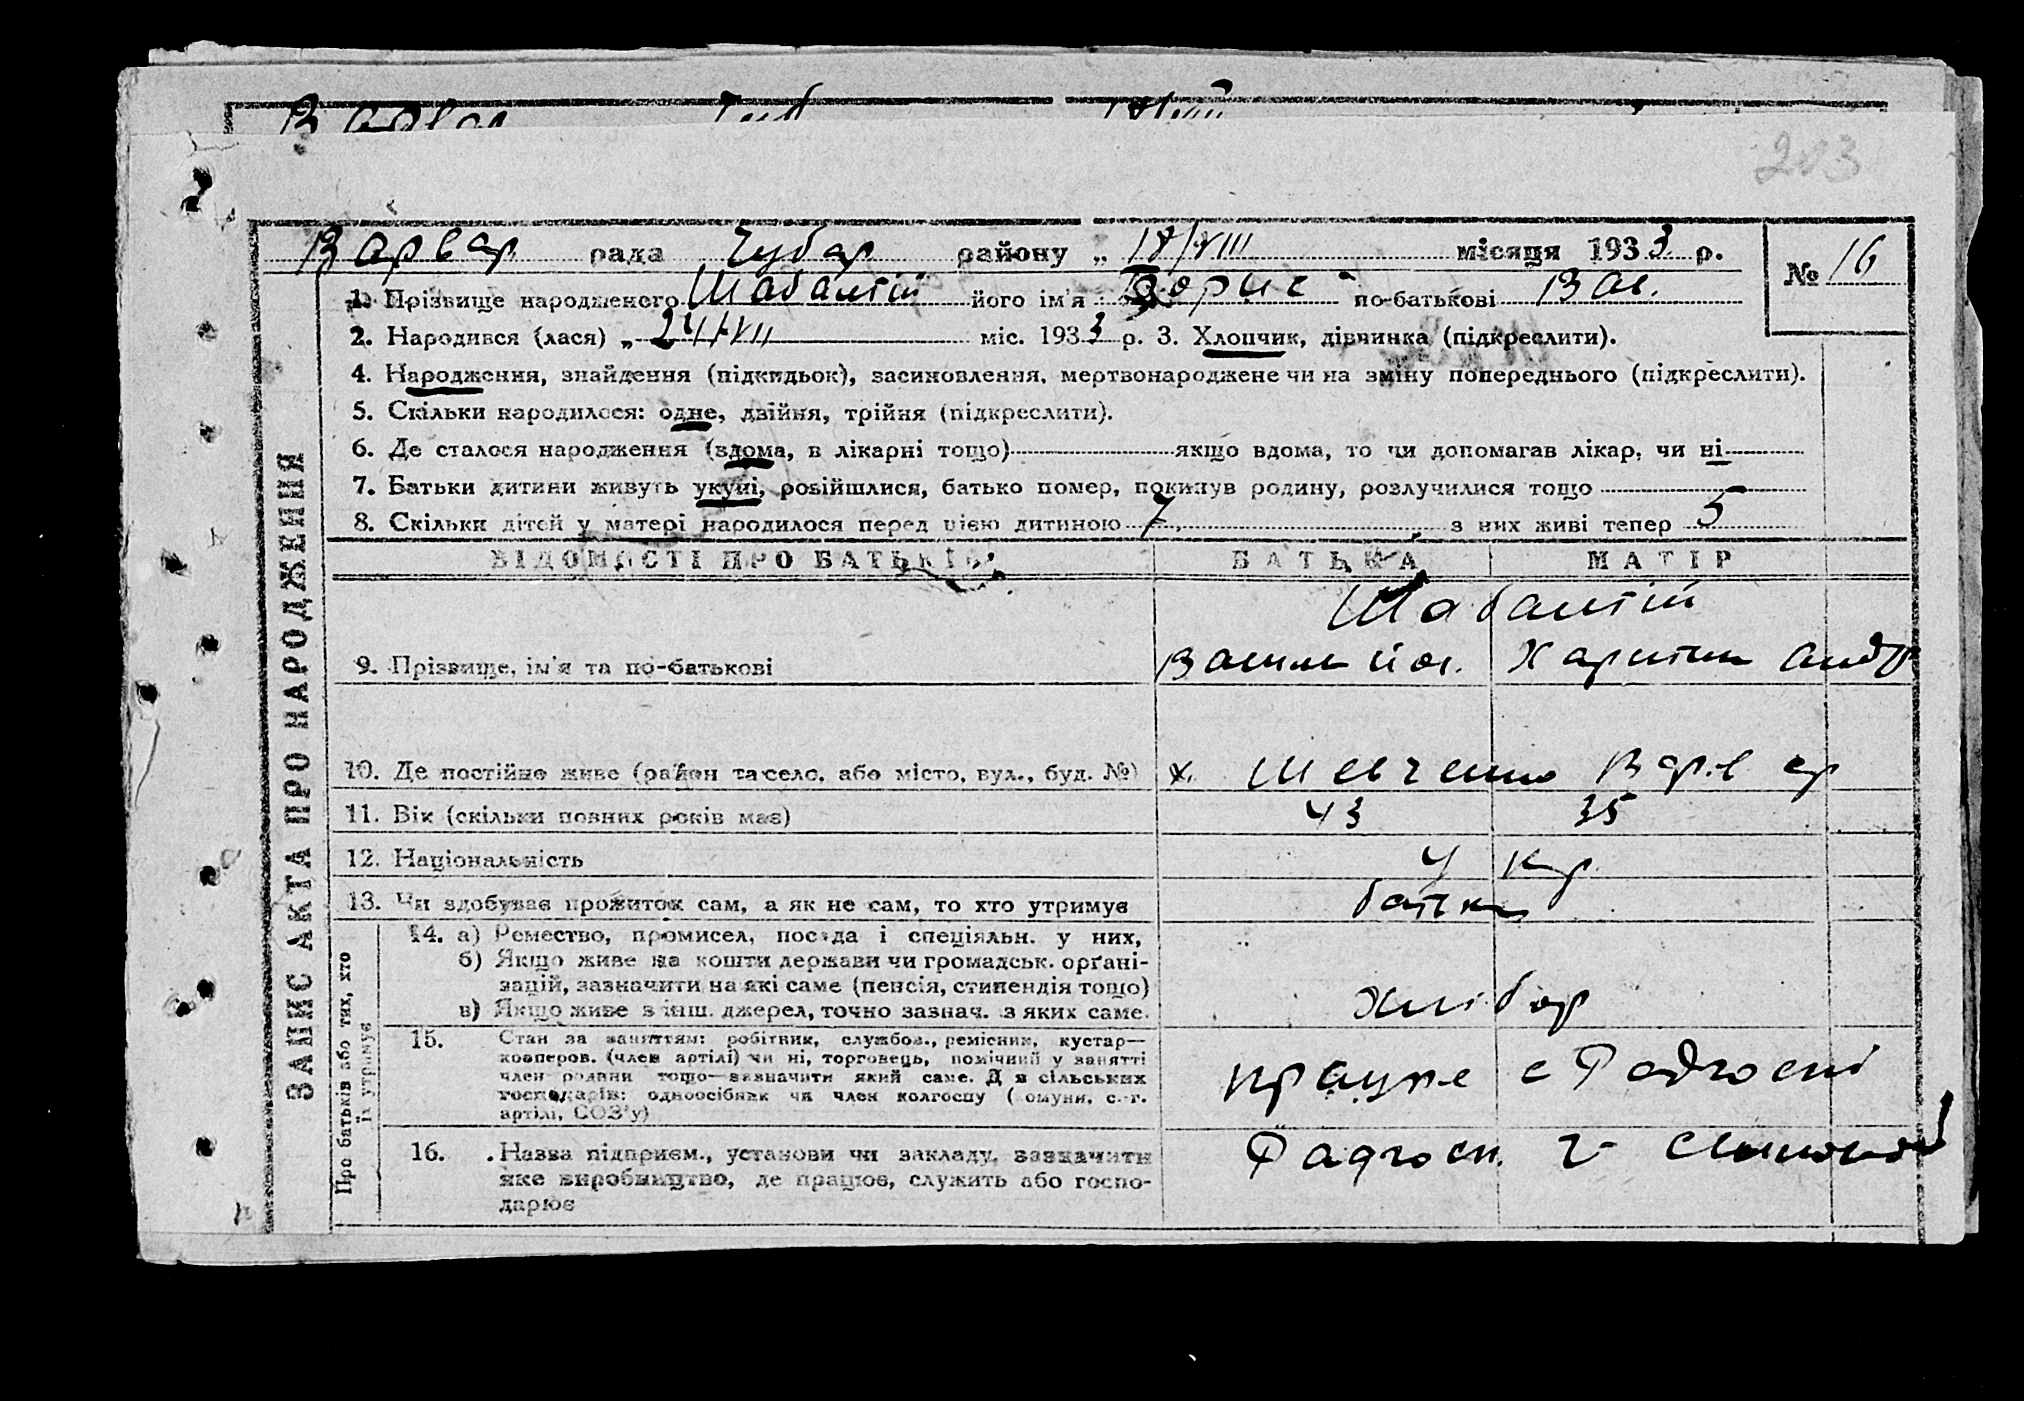 203
Варвар рада Чубар району „ 17/VIII місяця 1933 р.
№ 16
1. Прізвище народженого Шабантій його ім'я Борис по-батькові Вас.
2. Народився (лася) „ 24/VII міс. 1933 р. 3. Хлопчик, дівчинка (підкреслити).
4. Народження, знайдення (підкидьок), засиновлення, мертвонароджене чи на зміну попереднього (підкреслити).
5. Скільки народилося: одне, двійня, трійня (підкреслити).
6. Де сталося народження (вдома, в лікарні тощо) якщо вдома, то чи допомагав лікар, чи ні
7. Батьки дитини живуть укупі, розійшлися, батько помер, покинув родину, розлучилися тощо
8. Скільки дітей у матері народилося перед цією дитиною 7 з них живі тепер 5
ВІДОМОСТІ ПРО БАТЬКІВ БАТЬКА МАТІР
Шабантій
9. Прізвище, ім'я та по-батькові Харитин Андр
10. Де постійно живе (район та село, або місто, вул., буд. №) х. Шевченко Варвар
11. Вік (скільки повних років має) 43 35
12. Національність Укр.
13. Чи здобуває прожиток сам, а як не сам, то хто утримує батько
14. а) Ремество, промисел, посада і спеціяльн. у них,
б) Якщо живе на кошти держави чи громадськ. орґані-
зацій, зазначити на які саме (пенсія, стипендія тощо)
в) Якщо живе з інш. джерел, точно зазнач. з яких саме. хлібор
15. Стан за заняттям: робітник, службов., ремісник, кустар—
кооперов. (член артілі) чи ні, торговець, помічний у занятті
член родини тощо—зазначити який саме. Для сільських
господарів: одноосібник чи член колгоспу (комуни, с.-г.
артілі, СОЗ'у) працює в Радгоспі
16. Назва підприєм., установи чи закладу, зазначити
яке виробництво, де працює, служить або госпо-
дарює Радгосп.
ЗАПИС АКТА ПРО НАРОДЖЕННЯ
Про батьків або тих, хто
їх утримує